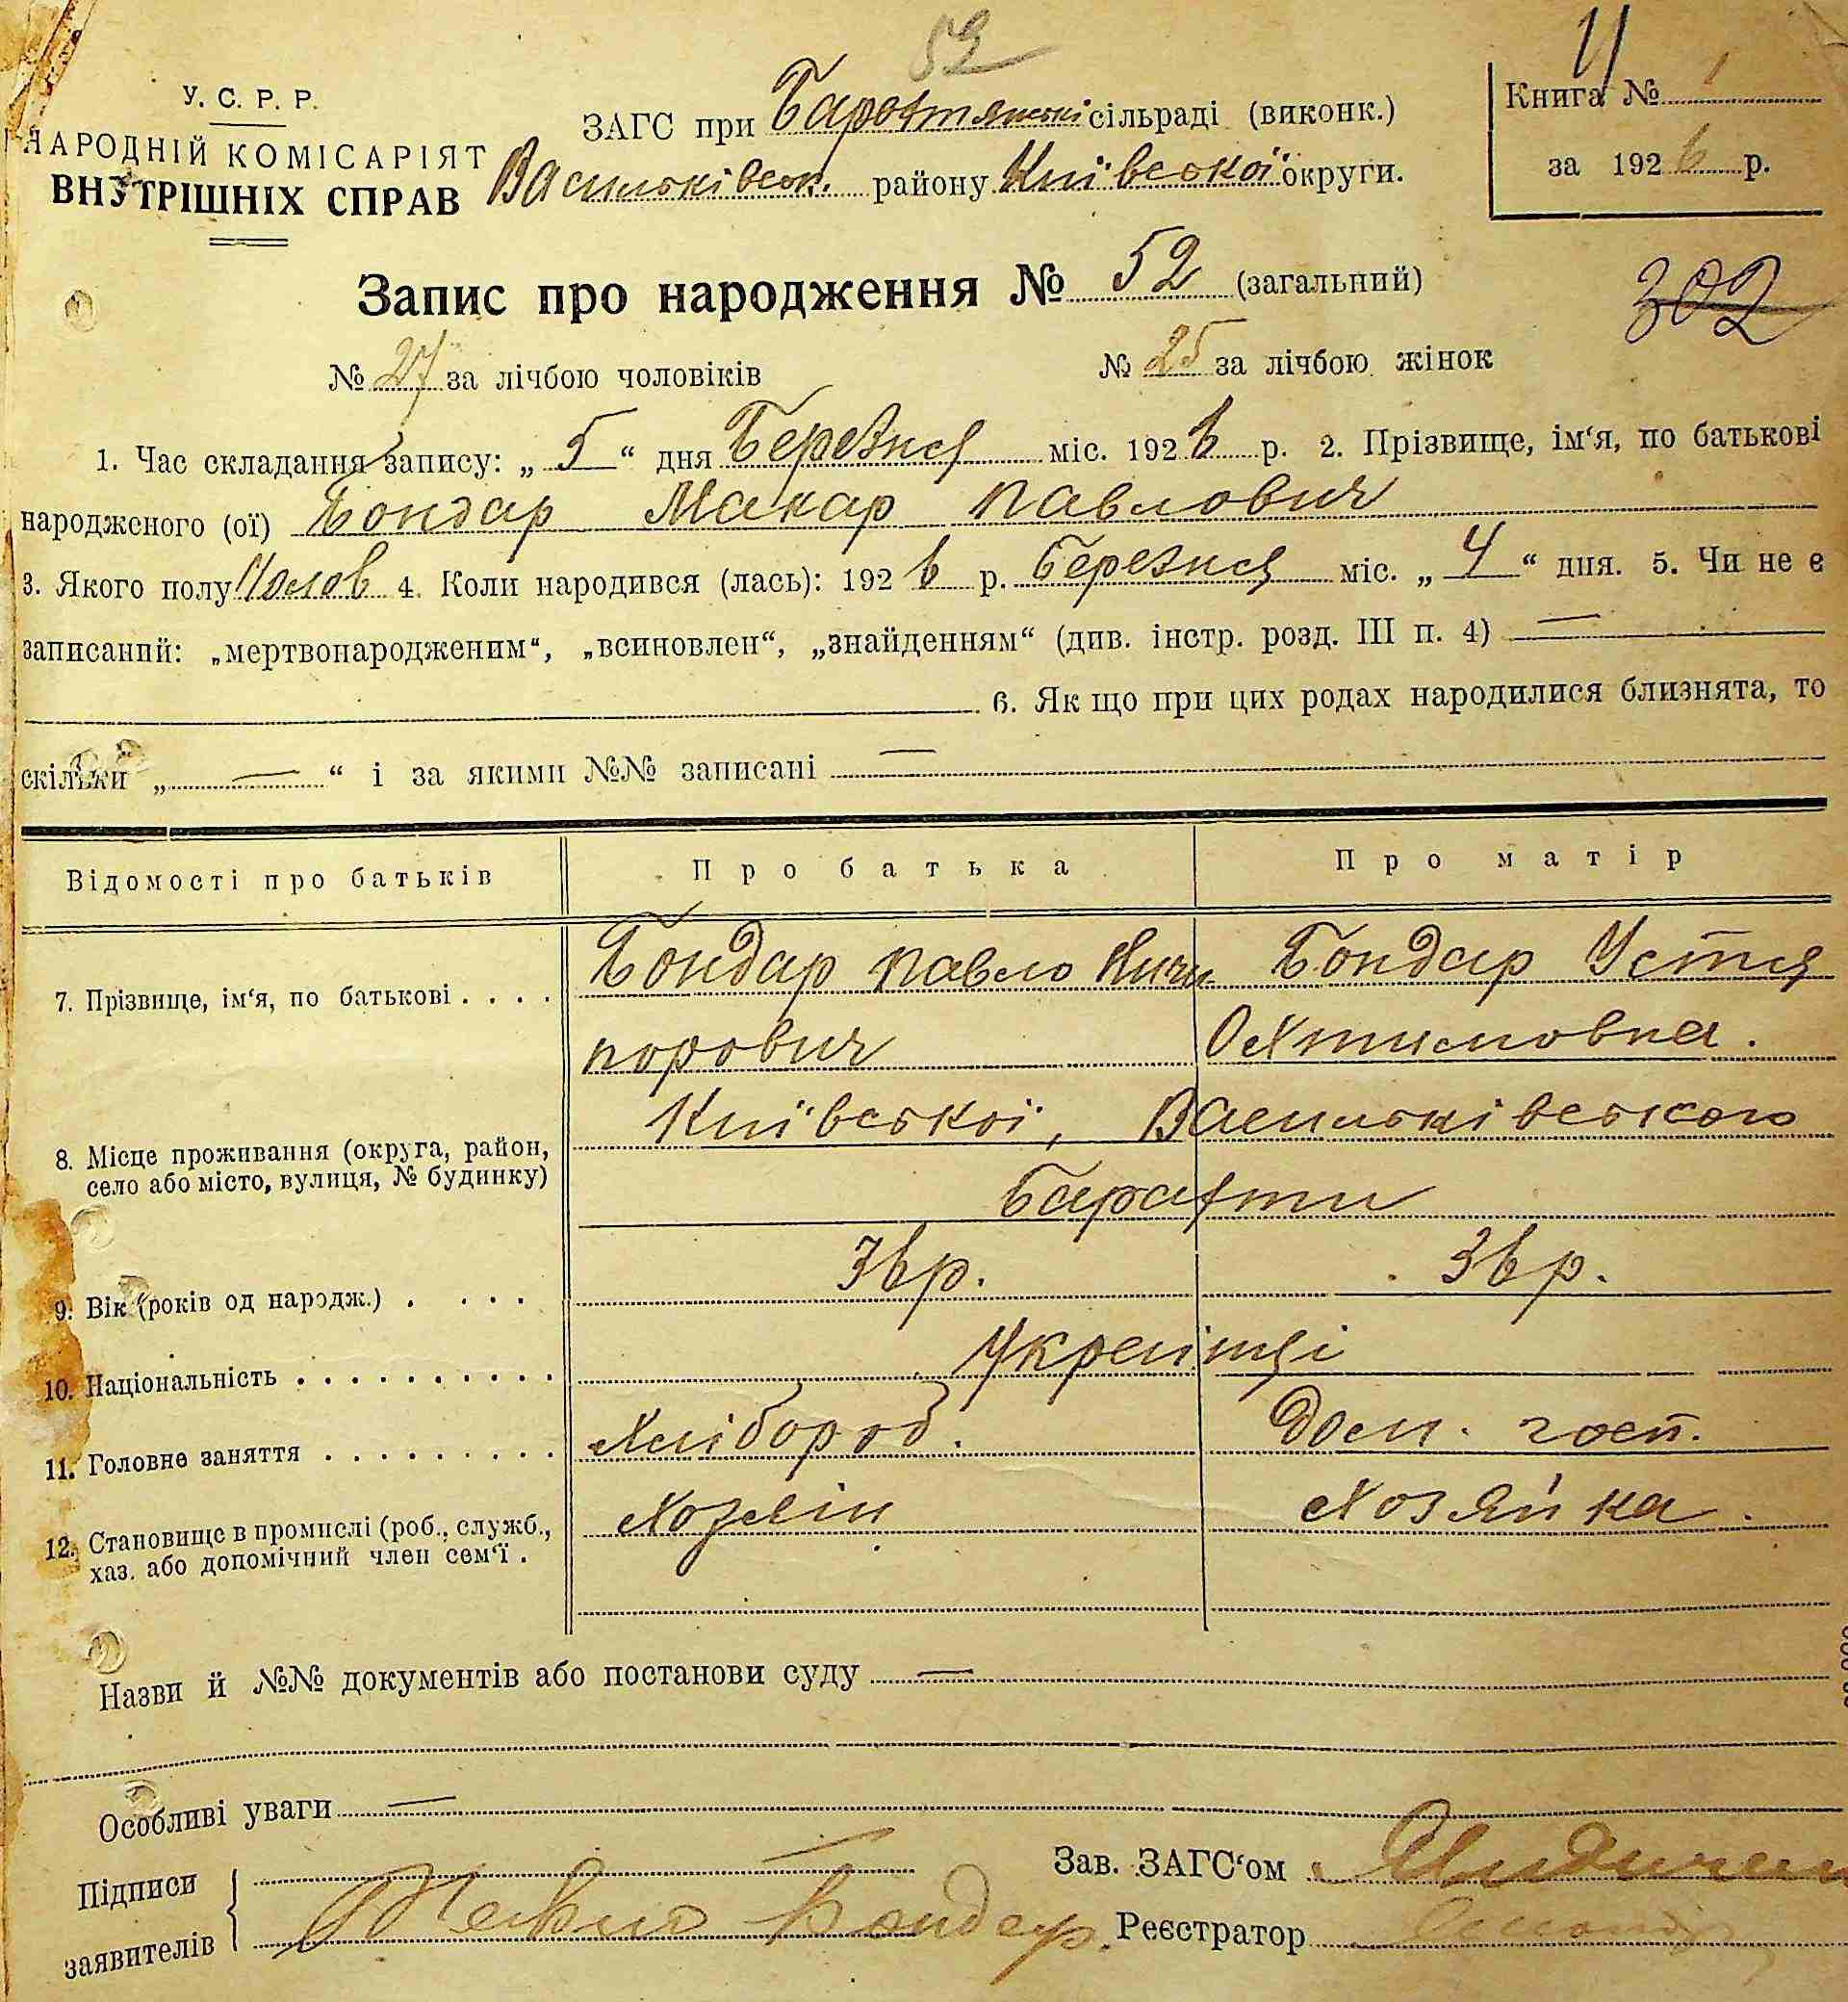 52
У. С. Р. Р.
НАРОДНІЙ КОМІСАРІЯТ
ВНУТРІШНІХ СПРАВ
ЗАГС при Барахтянські сільраді (виконк.)
Васильківськ. району Київської округи.
Книга № 1
за 1926 р.
Запис про народження № 52 (загальний)
302
№ 27 за лічбою чоловіків № 25 за лічбою жінок
1. Час складання запису: „ 5 “ дня Березня міс. 1926 р. 2. Прізвище, ім‘я, по батькові
народженого (ої) Бондар Макар Павлович
3. Якого полу Чолов 4. Коли народився (лась): 1926 р. Березня міс. „ 4 “ дня. 5. Чи не є
записаний: „мертвонародженим“, „всиновлен“, „знайденням“ (див. інстр. розд. III п. 4) —
6. Як що при цих родах народилися близнята, то
скільки „ — “ і за якими №№ записані —
Відомості про батьків Про батька Про матір
7. Прізвище, ім‘я, по батькові . . . . Бондар Павло Ничи- Бондар Устя
порович Охтимовна.
Київської, Васильківського
8. Місце проживання (округа, район,
село або місто, вулиця, № будинку)
Барахти
9. Вік (років од народж.) . . . . 36 р. 36 р.
10. Національність . . . . . . . . . . Українці
11. Головне заняття . . . . . . . . . Хлібороб. Дом. госп.
12. Становище в промислі (роб., служб., Хозяін Хозяйка.
хаз. або допомічний член сем‘ї .
Назви й №№ документів або постанови суду —
Особливі уваги —
Підписи
заявителів
Павло Бондар.
Зав. ЗАГС‘ом
Реєстратор